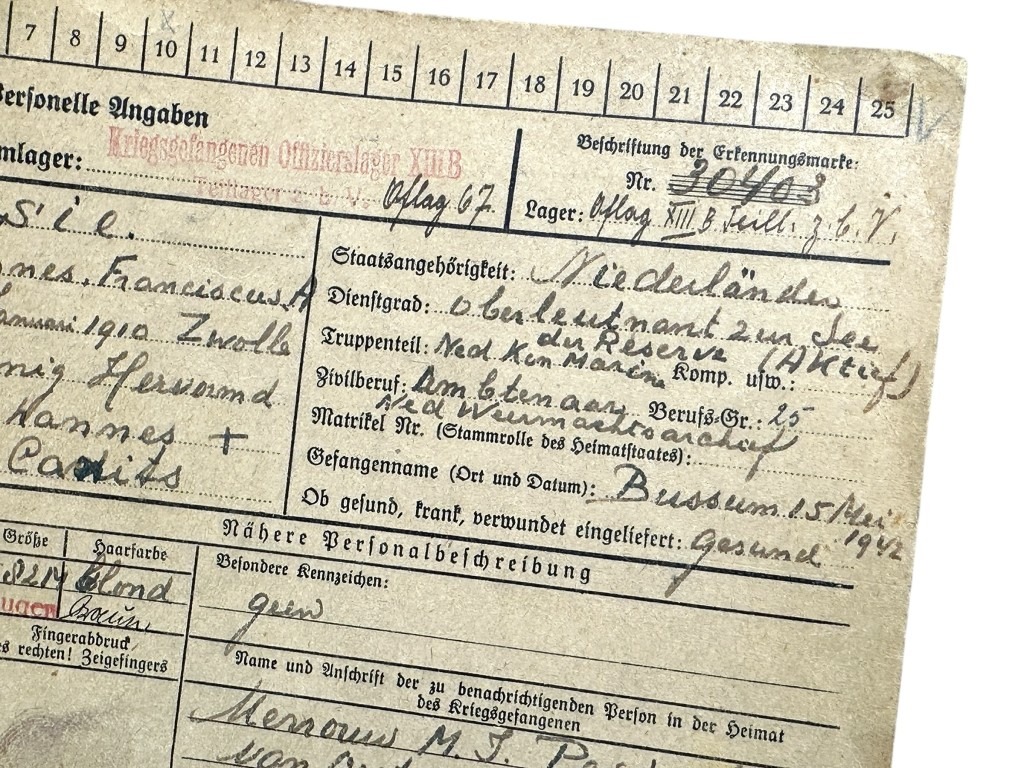 7 8 9 10 11 12 13 14 15 16 17 18 19 20 21 22 23 24 25
Personelle Angaben
Kriegsgefangenen Offizierslager XIII B
Teillager z. b. V.
mlager: Oflag 67.
Beschriftung der Erkennungsmarke:
Nr. 30403
Lager: Oflag XIII B. Teill. z. b. V.
sie.
nes. Franciscus A
anuari 1910 Zwolle
nig Hervormd
Hannes +
Staatsangehörigkeit: Niederländer
Dienstgrad: Oberleutnant zur See
der Reserve (Aktief)
Truppenteil: Ned Kon Marine Komp. usw.:
Zivilberuf: Ambtenaar Berufs-Gr.: 25
Ned Weermachtsarchief
Matrikel Nr. (Stammrolle des Heimatstaates):
Gefangenname (Ort und Datum): Bussum 15 Mei
1942
Ob gesund, krank, verwundet eingeliefert: Gesund
Nähere Personalbeschreibung
Größe Haarfarbe
82M blond
Braun
ugen
Fingerabdruck
es rechten! Zeigefingers
Besondere Kennzeichen:
geen
Name und Anschrift der zu benachrichtigenden Person in der Heimat
des Kriegsgefangenen
Mevrouw M. J.
van